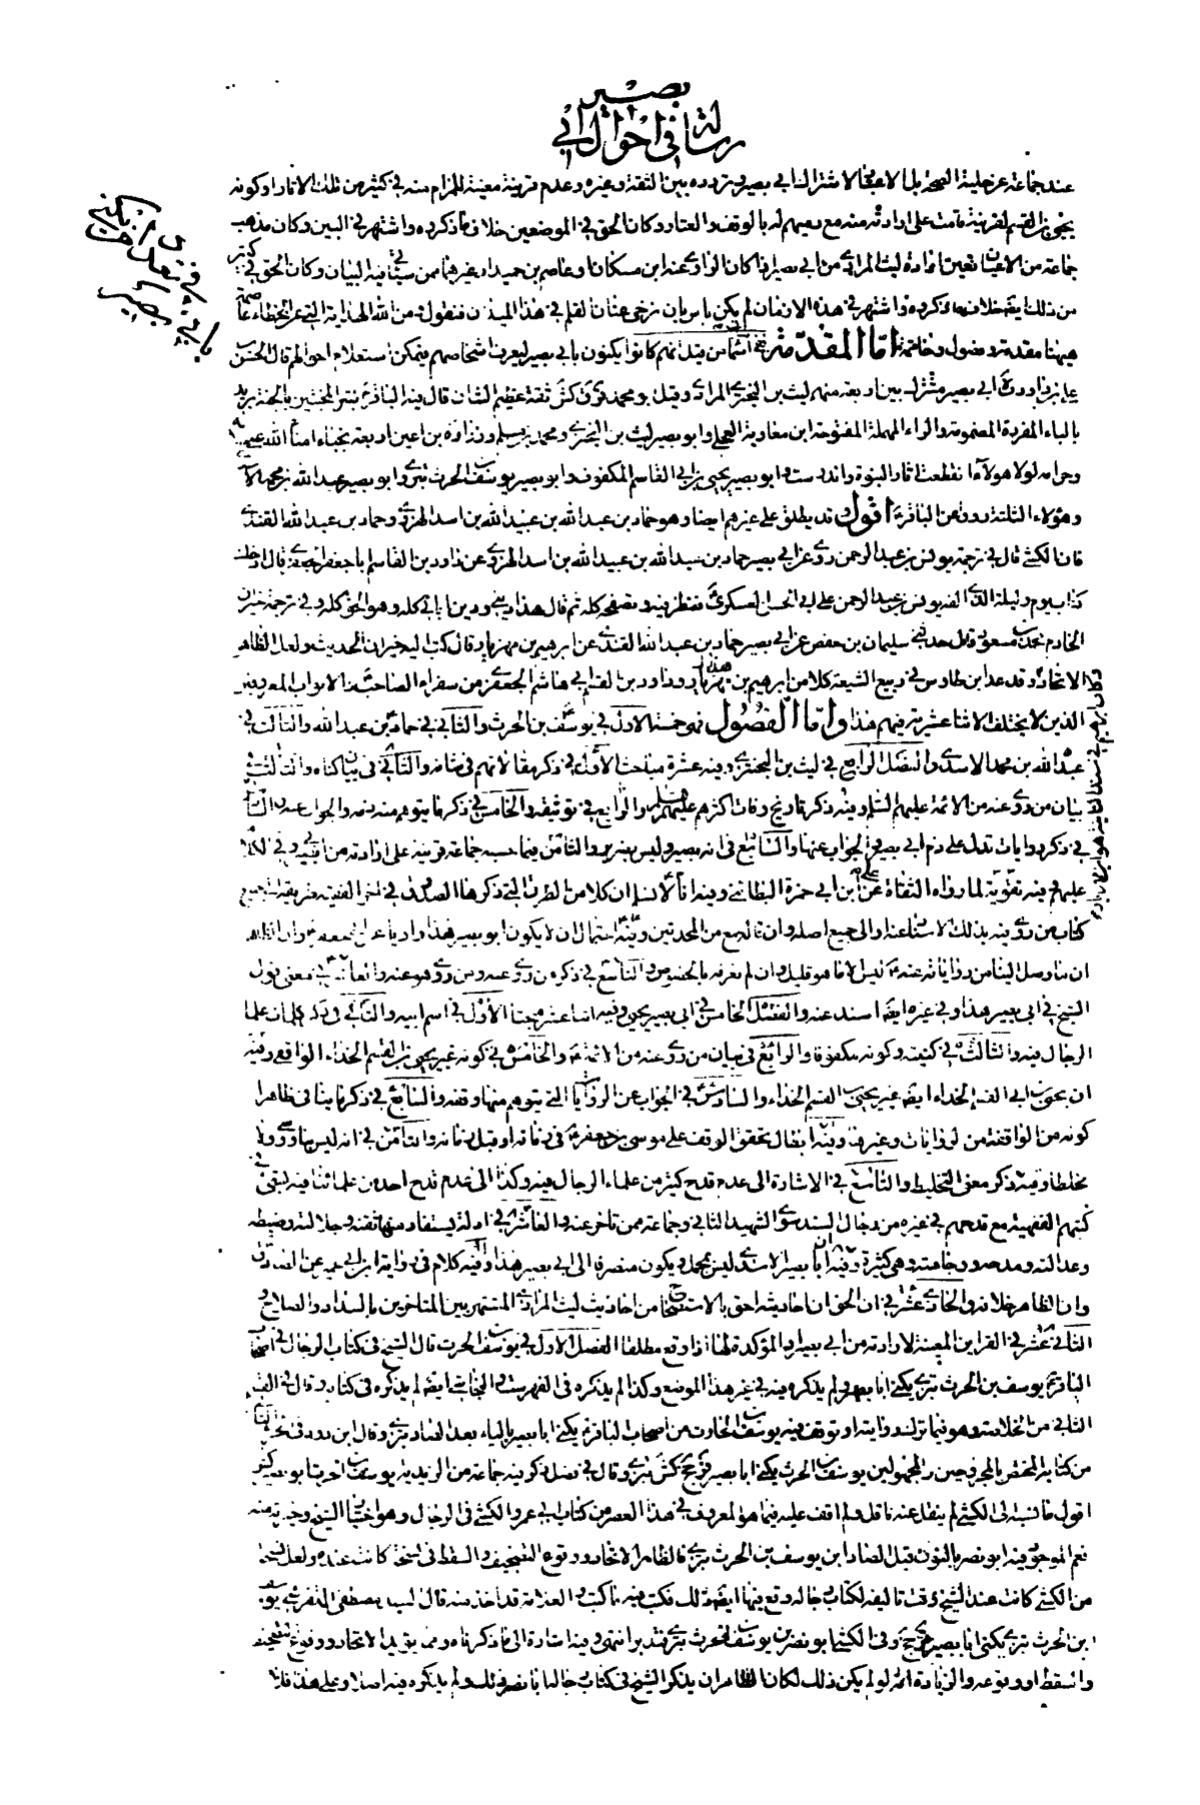 رسالة في احوال ابي بصير
عند جماعة عن حلية الصحة بل الاعتبار لاشتراك ابي بصير وتردده بين الثقة وغيره وعدم قرينة معينة للمرام منه في كثير من تلك الاخبار او كونه
يحيى بن القسم لقرينة قامت على ارادته منه مع رميهم له بالوقف والعناد وكان الحق في الموضعين خلاف ما ذكروه واشتهر في البين وكان مذهب
جماعة من الاعيان تعين ارادة ليث المرادي من ابي بصير اذا كان الراوي عنه ابن مسكان او عاصم بن حميد او غيرهما من سياتي فيه البيان وكان الحق في كثير
من ذلك ايضا خلاف ما ذكروه واشتهر في هذه الازمان لم يكن باس بان نرخي عنان القلم في هذا الميدان فنقول ومن الله الهداية
هيهنا مقدمة وفصول وخاتمة اما المقدمة ففي اسماء من قيل انهم كانوا يكنون بابي بصير ليعرف اشخاصهم فيتمكن استعلام احوالهم قال الحسن بن
علي بن داود ابي بصير مشترك بين اربعة منهم ليث بن البختري المرادي وقيل ابو محمد ثقة عظيم الشان قال فيه الباقر بشر المخبتين بالجنة بريد
بالباء المفردة المضمومة والراء المهملة المفتوحة ابن معاوية العجلي وابو بصير ليث بن البختري ومحمد بن مسلم وزرارة بن اعين اربعة نجباء امناء الله على حلاله
وحرامه لولا هؤلاء انقطعت اثار النبوة واندرست وابو بصير يحيى بن ابي القاسم المكفوف وابو بصير يوسف بن الحرث بتري وابو بصير عبد الله بن محمد الاسدي
وهؤلاء الثلثة رووا عن الباقر اقول وقد يطلق على غيرهم ايضا وهو حماد بن عبد الله بن عبيد الله بن اسد الهروي وحماد بن عبد الله القندي
فان الكشي قال في ترجمة يونس بن عبد الرحمن روى عن ابي بصير حماد بن عبد الله بن عبيد الله بن اسد الهروي عن داود بن القاسم ابا جعفر الجعفري قال ادخلت
كتاب يوم وليلة الذي الفه يونس بن عبد الرحمن على ابي الحسن العسكري فنظر فيه وتصفحه كله ثم قال هذا ديني ودين ابائي كله وهو الحق كله وفي ترجمة خيران
الخادم محمد بن مسعود قال حدثني سليمان بن حفص عن ابي بصير حماد بن عبد الله القندي عن ابرهيم بن مهزيار قال كتب الي خيران الحديث ولعل الظاهر
الاتحاد وقد عد ابن طاوس في ربيع الشيعة كلا من ابرهيم بن مهزيار وداود بن القسم ابي هاشم الجعفري من سفراء الصاحب والابواب المعروفين
الذين لا يختلف الاثنا عشرية فيهم هذا واما الفصول فهي خمسة الاول في يوسف بن الحرث والثاني في حماد بن عبد الله والثالث في
عبد الله بن محمد الاسدي والفصل الرابع في ليث بن البختري وفيه عشرة مباحث الاول في ذكر مقالاتهم في شانه والثاني في بيان كناه والثالث في
بيان من روى عنه من الائمة عليهم السلم وفيه ذكر تاريخ وفات اكثرهم عليهم السلم والرابع في توثيقه والخامس في ذكر ما يتوهم منه ذمه والجواب عنه والسادس
في ذكر روايات تدل على ذم ابي بصير والجواب عنها والسابع في انه بصير وليس بضرير والثامن فيما حسبه جماعة قرينة على ارادته من ابي بصير وفي الكلام
عليهم فيه تقوية لما رواه الثقاة عن علي بن ابي حمزة البطائني وفيه انا لا نسلم ان كلا من الطرق التي ذكرها الصدوق في اخر الفقيه طريقه الى جميع
كتاب من روى فيه بذلك الاسناد عنه
ان ما وصل الينا من رواياته عنه ليس الا ما هو قليل وان لم نعرفه بالخصوص والتاسع في ذكر من روى عنه ومن روى هو عنه والعاشر في معنى قول
الشيخ في ابي بصير هذا وفي غيره ايضا اسند عنه والفصل الخامس في ابي بصير يحيى وفيه اثنا عشر مبحثا الاول في اسم ابيه والثاني في ذكر كلمات علماء
الرجال فيه والثالث في كنيته وكونه مكفوفا والرابع في بيان من روى عنه من الائمة والخامس في كونه غير يحيى بن القسم الحذاء الواقفي وفيه
ان يحيى بن ابي القسم الحذاء ايضا غير يحيى بن القسم الحذاء والسادس في الجواب عن الروايات التي يتوهم منها وقفه والسابع في ذكر ما ينافي ظاهرا
كونه من الواقفة من الروايات وغيرها وفيه ابطال تحقق الوقف على موسى بن جعفر في زمانه او قبل زمانه والثامن في انه ليس بهاوي ولا
مخلطا وفيه ذكر معنى التخليط والتاسع في الاشارة الى عدم قدح كثير من علماء الرجال فيه وكذا الى عدم قدح احد من علمائنا فيه يتبين في
كتبهم الفقهية مع قدحهم في غيره من رجال السند سوى الشهيد الثاني وجماعة ممن تاخر عنه والعاشر في ادلة يستفاد منها ثقته وجلالته وضبطه
وعدالته ومدحه ووجاهته وهي كثيرة وفيه ان ابا بصير الاسدي ليس بمجمل ويكون منصرفا الى ابي بصير هذا وفيه كلام في رواية ابن ابي عمير عن الصادق
وان الظاهر خلافه والحادي عشر في ان الحق ان احاديثه احق بالاستصحاح من احاديث ليث المرادي المشتهر بين المتاخرين بالسداد والصلاح و
الثاني عشر في القرائن المعينة لارادته من ابي بصير او المؤكدة لها اذا وقع مطلقا الفصل الاول في يوسف بن الحرث قال الشيخ في كتاب الرجال في اصحاب
الباقر يوسف بن الحرث بتري يكنى ابا بصير ولم يذكره فيه في غير هذا الموضع وكذا لم يذكره في الفهرست والنجاشي ايضا لم يذكره في كتابه وقال في القسم
الثاني من الخلاصة وهو فيما ترك روايته او توقف فيه يوسف بن الحارث من اصحاب الباقر يكنى ابا بصير بالياء بعد الصاد بتري وقال ابن داود في
من كتابه المختص بالمجروحين والمجهولين يوسف بن الحرث يكنى ابا بصير قر جخ كش بتري وقال في فصل ذكر فيه جماعة من الزيدية يوسف بن الحرث ابو بصير كش
اقول ما نسبه الى الكشي لم ينقل عنه ناقل ولم اقف عليه فيما هو المعروف في هذا العصر من كتاب ابي عمرو الكشي في الرجال وهو اختيار الشيخ وخيرته منه
نعم الموجود فيه ابو نصر بالنون قبل الصاد ابن يوسف بن الحرث بتري فالظاهر الاتحاد ووقوع التصحيف والسقط في نسخة كانت عنده ولعل نسخة
من الكشي كانت عند الشيخ وقت تاليفه لكتاب رجاله وقع فيها ايضا ذلك فكتب فيه ما كتب والعلامة قد اخذ منه قال السيد مصطفى التفرشي يوسف
ابن الحرث بتري يكنى ابا بصير قر جخ وفي الكشي ابو نصر بن يوسف بن الحرث بتري فتدبر انتهى وفيه اشارة الى ما ذكرناه ومما يؤيد الاتحاد ووقوع التصحيف
والسقط او وقوعه والزيادة انه لو لم يكن ذلك لكان الظاهر ان يذكر الشيخ في كتاب رجاله ابا نصر ذلك ولم يذكره فيه اصلا وعلى هذا فلا